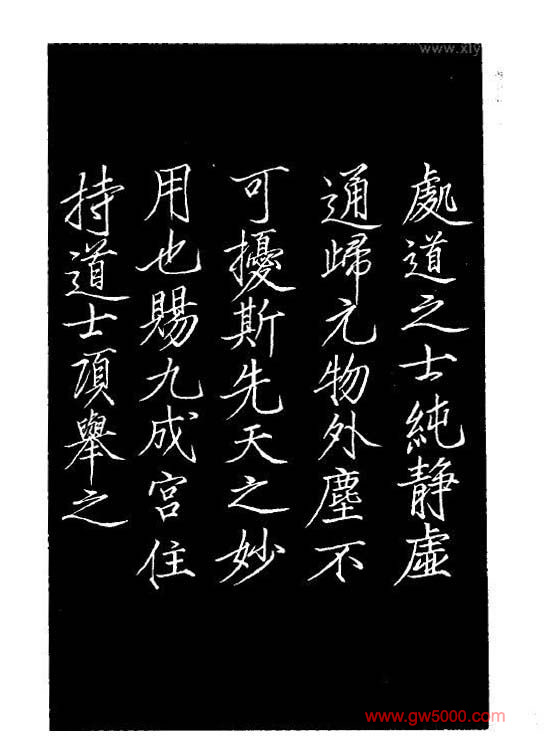 處道之士純静虛
通歸元物外塵不
可擾斯先天之妙
用也賜九成宮住
持道士項舉之
www.xly
www.gw5000.com